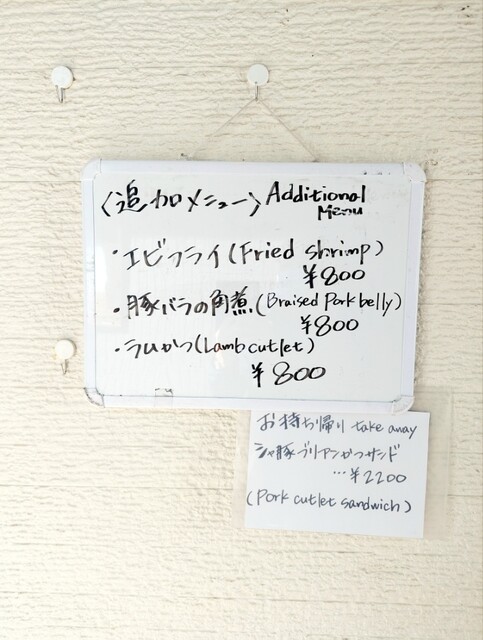 〈追加メニュー〉Additional Menu
・エビフライ(Fried shrimp)
¥800
・豚バラの角煮(Braised Pork belly)
¥800
・ラムかつ(Lamb cutlet)
¥800
お持ち帰り take away
シャ豚ブリアンかつサンド
…¥2200
(Pork cutlet sandwich)